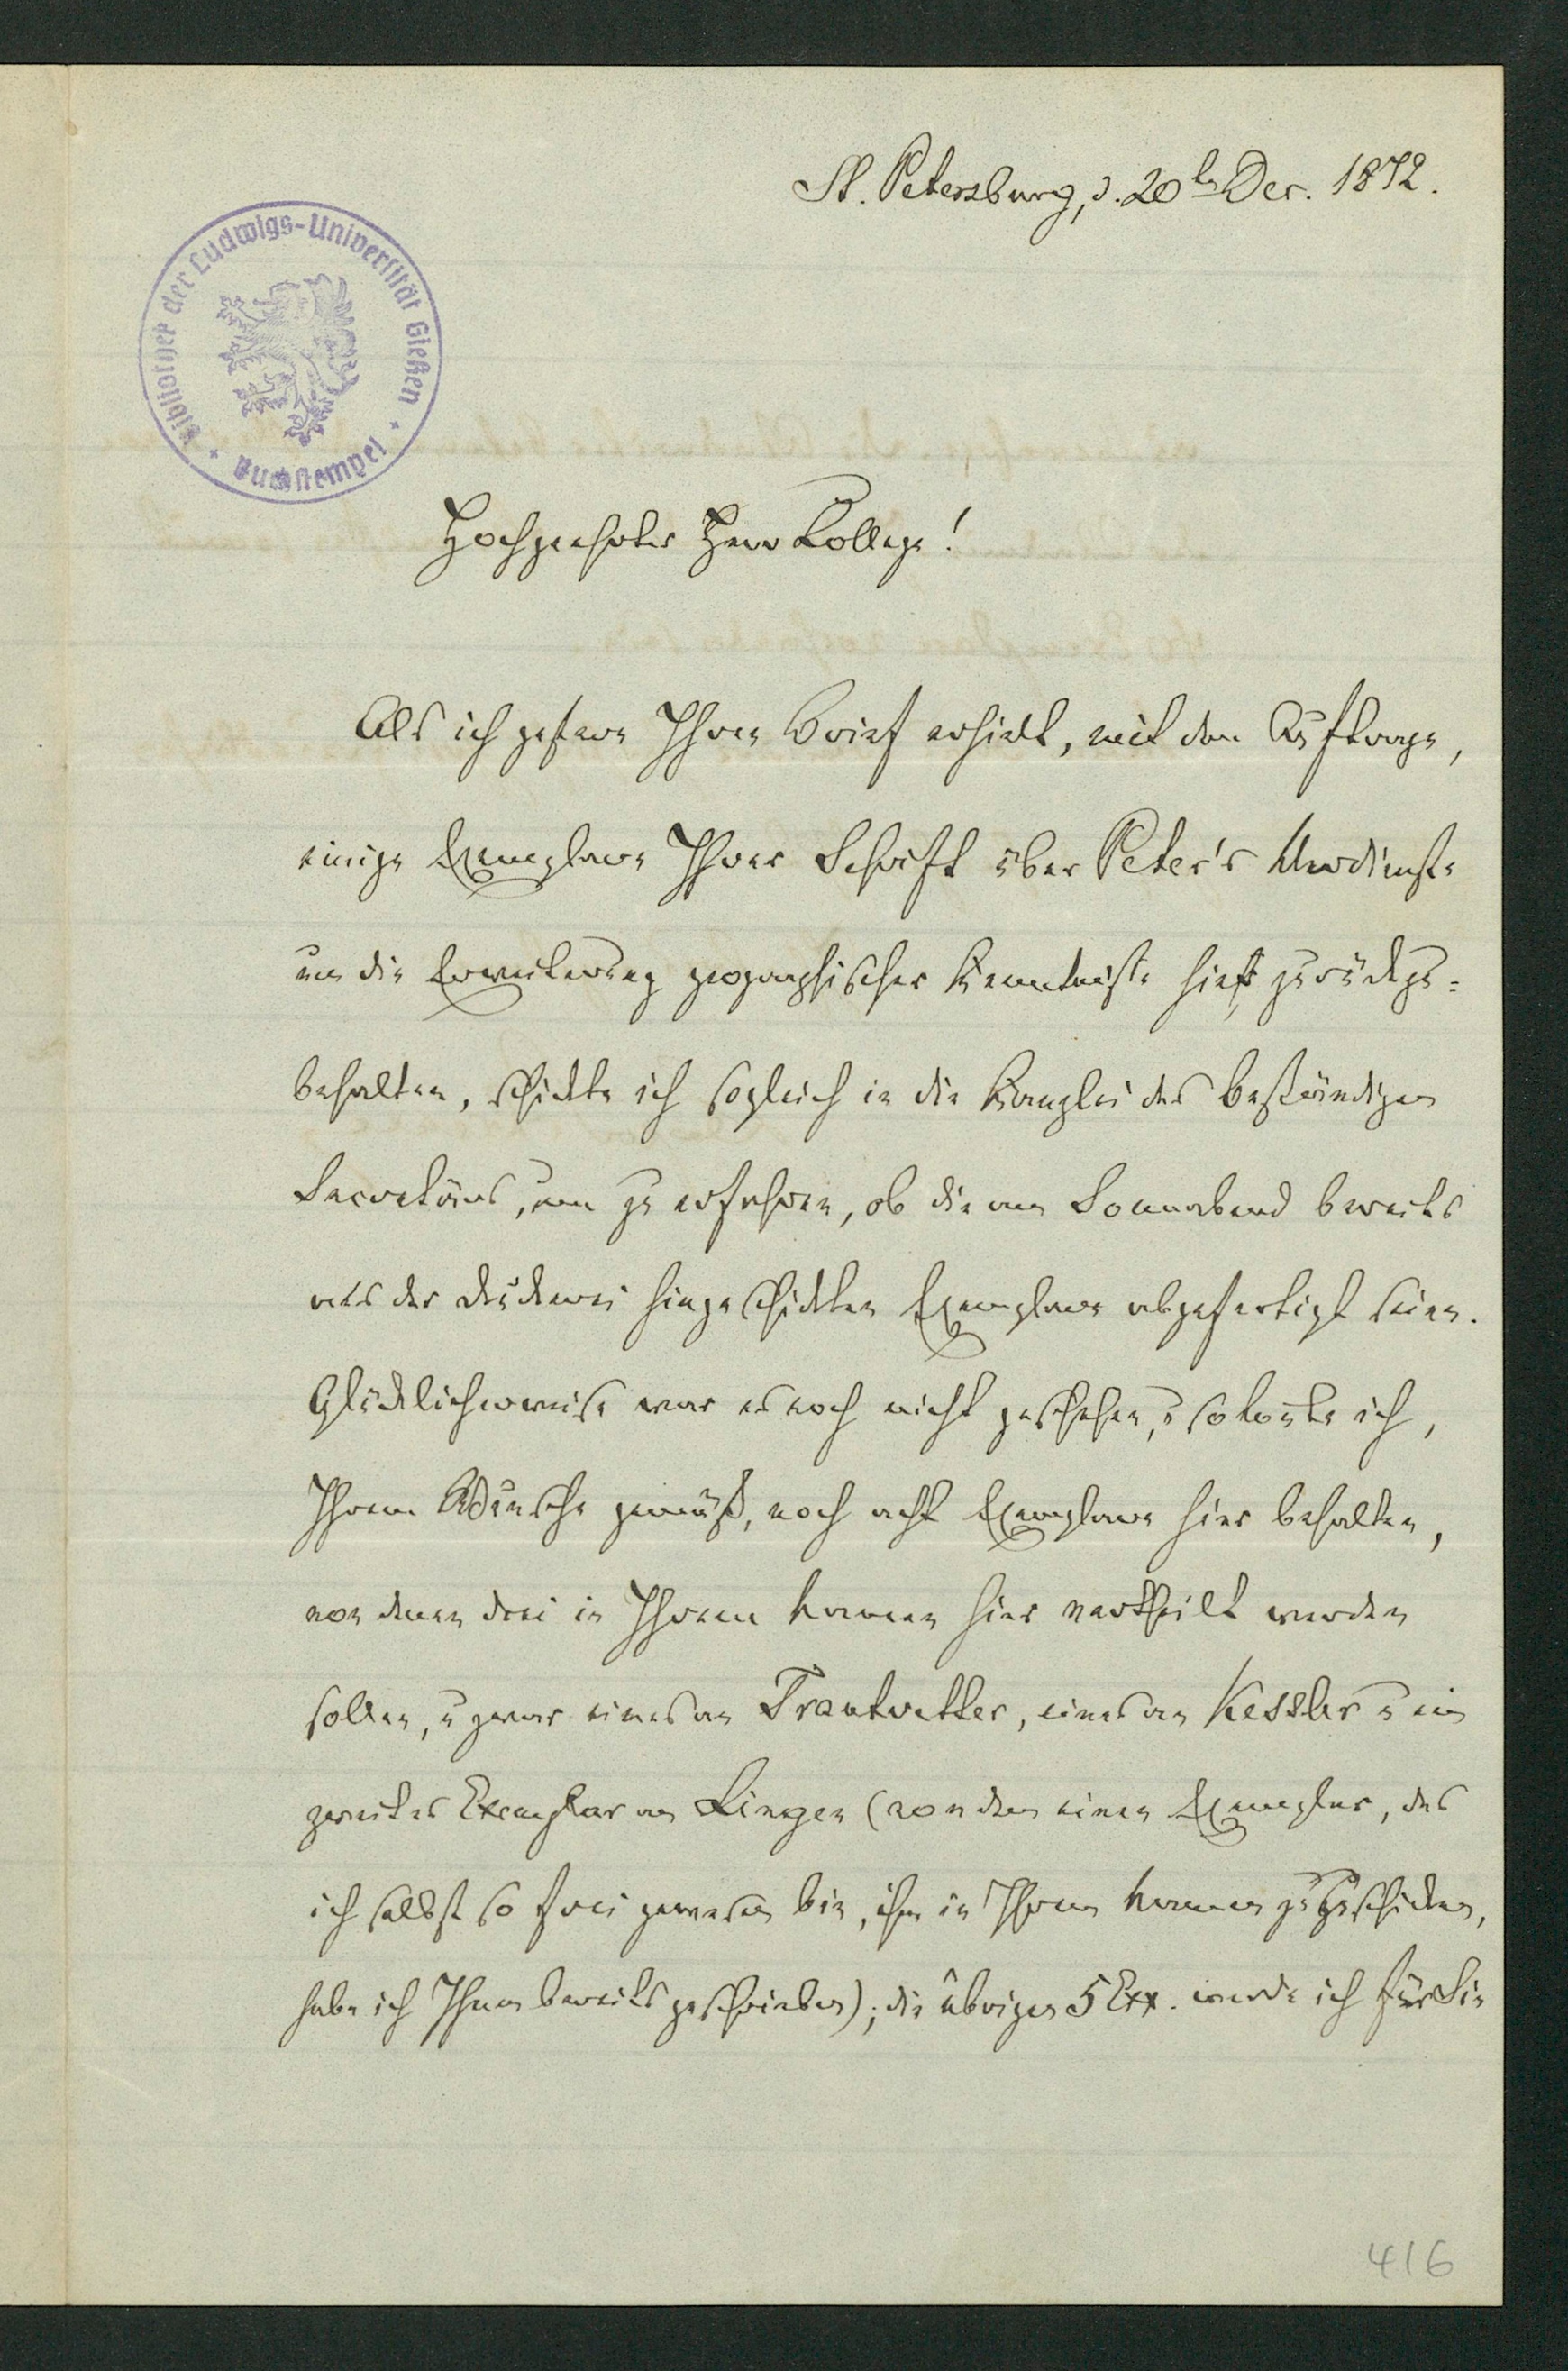 St. Petersburg, d. 20ten Dec. 1872.
Bibliothek der Ludwigs-Universität Gießen
Buchstempel
Hochgeehrter Herr College!
Als ich gestern Ihren Brief erhielt, mit dem Auftrage,
einige Exemplare Ihrer Schrift über Peter's Verdienste
um die Erweiterung geographischer Kenntnisse hier zurückzu-
behalten, schickte ich sogleich in die Kanzlei des beständigen
Secretärs, um zu erfahren, ob die am Sonnabend bereits
aus der Druckerei hingeschickten Exemplare abgefertigt seien.
Glücklicherweise war es noch nicht geschehen, u. so konte ich,
Ihrem Wunsche gemäß, noch acht Exemplare hier behalten,
von denen drei in Ihrem Namen hier vertheilt werden
sollen, u zwar eines an Trautvetter, eines an Kessler u ein
zweites Exemplar an Lingen (von dem einen Exemplar, das
ich selbst so frei gewesen bin, ihm in Ihrem Namen zuzuschicken,
habe ich Ihnen bereits geschrieben); die übrigen 5 Exx. werde ich für Sie
416